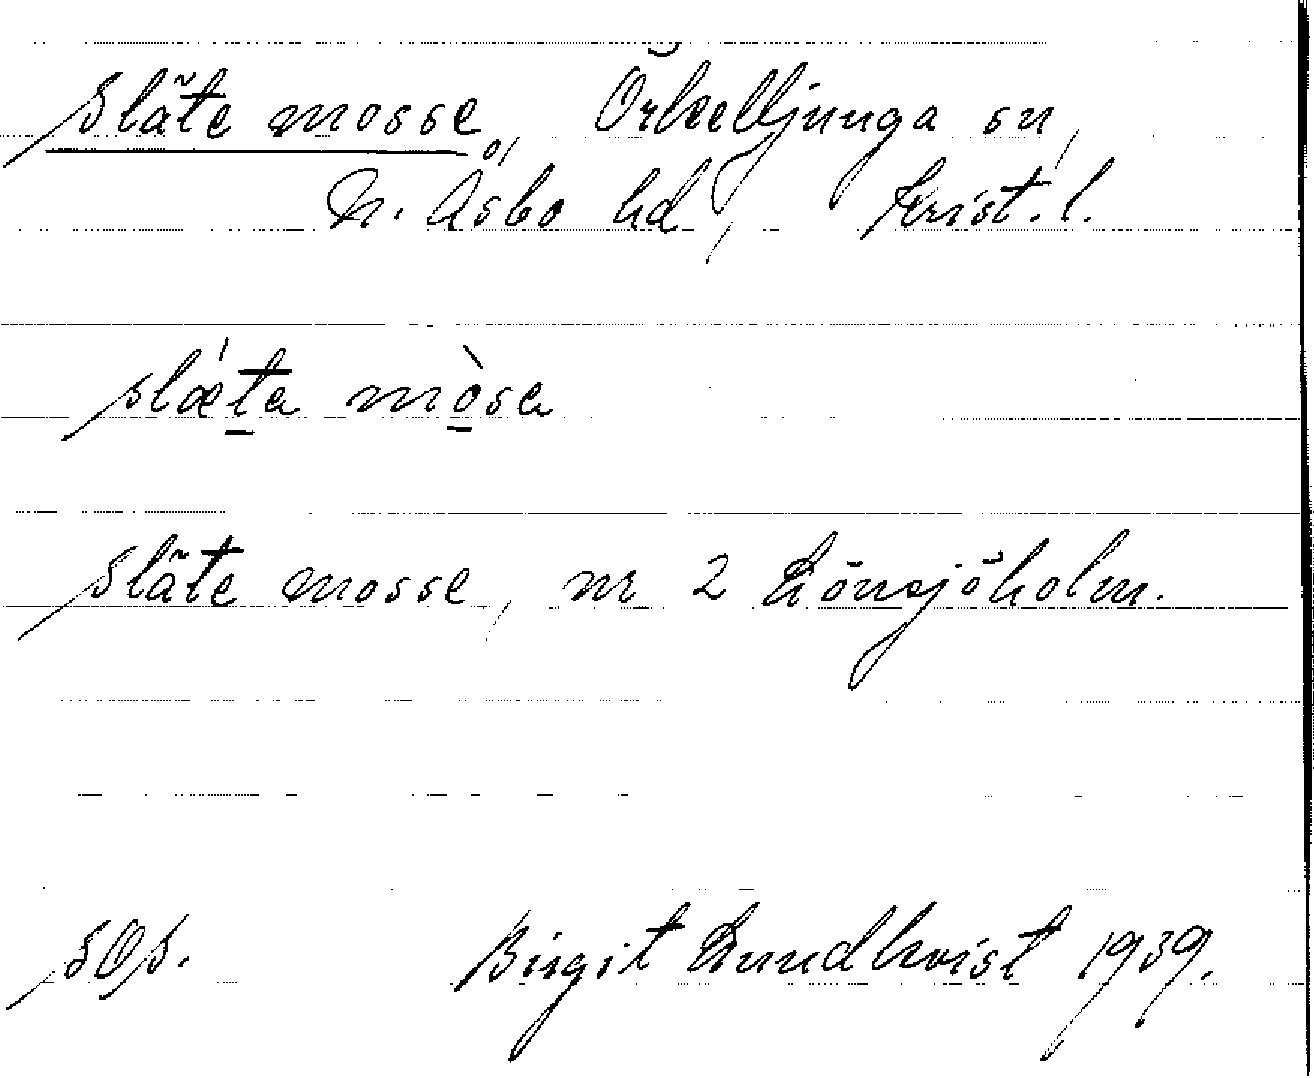 Släte mosse, Örkelljunga sn,
N. Åsbo hd, Krist. l.
slǽta mòsa
Släte mosse, nr 2 Lönsjöholm.
SOS. Birgit Lundkvist 1939.